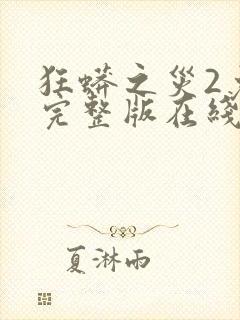 狂蟒之災2
完整版在綫
夏淋雨